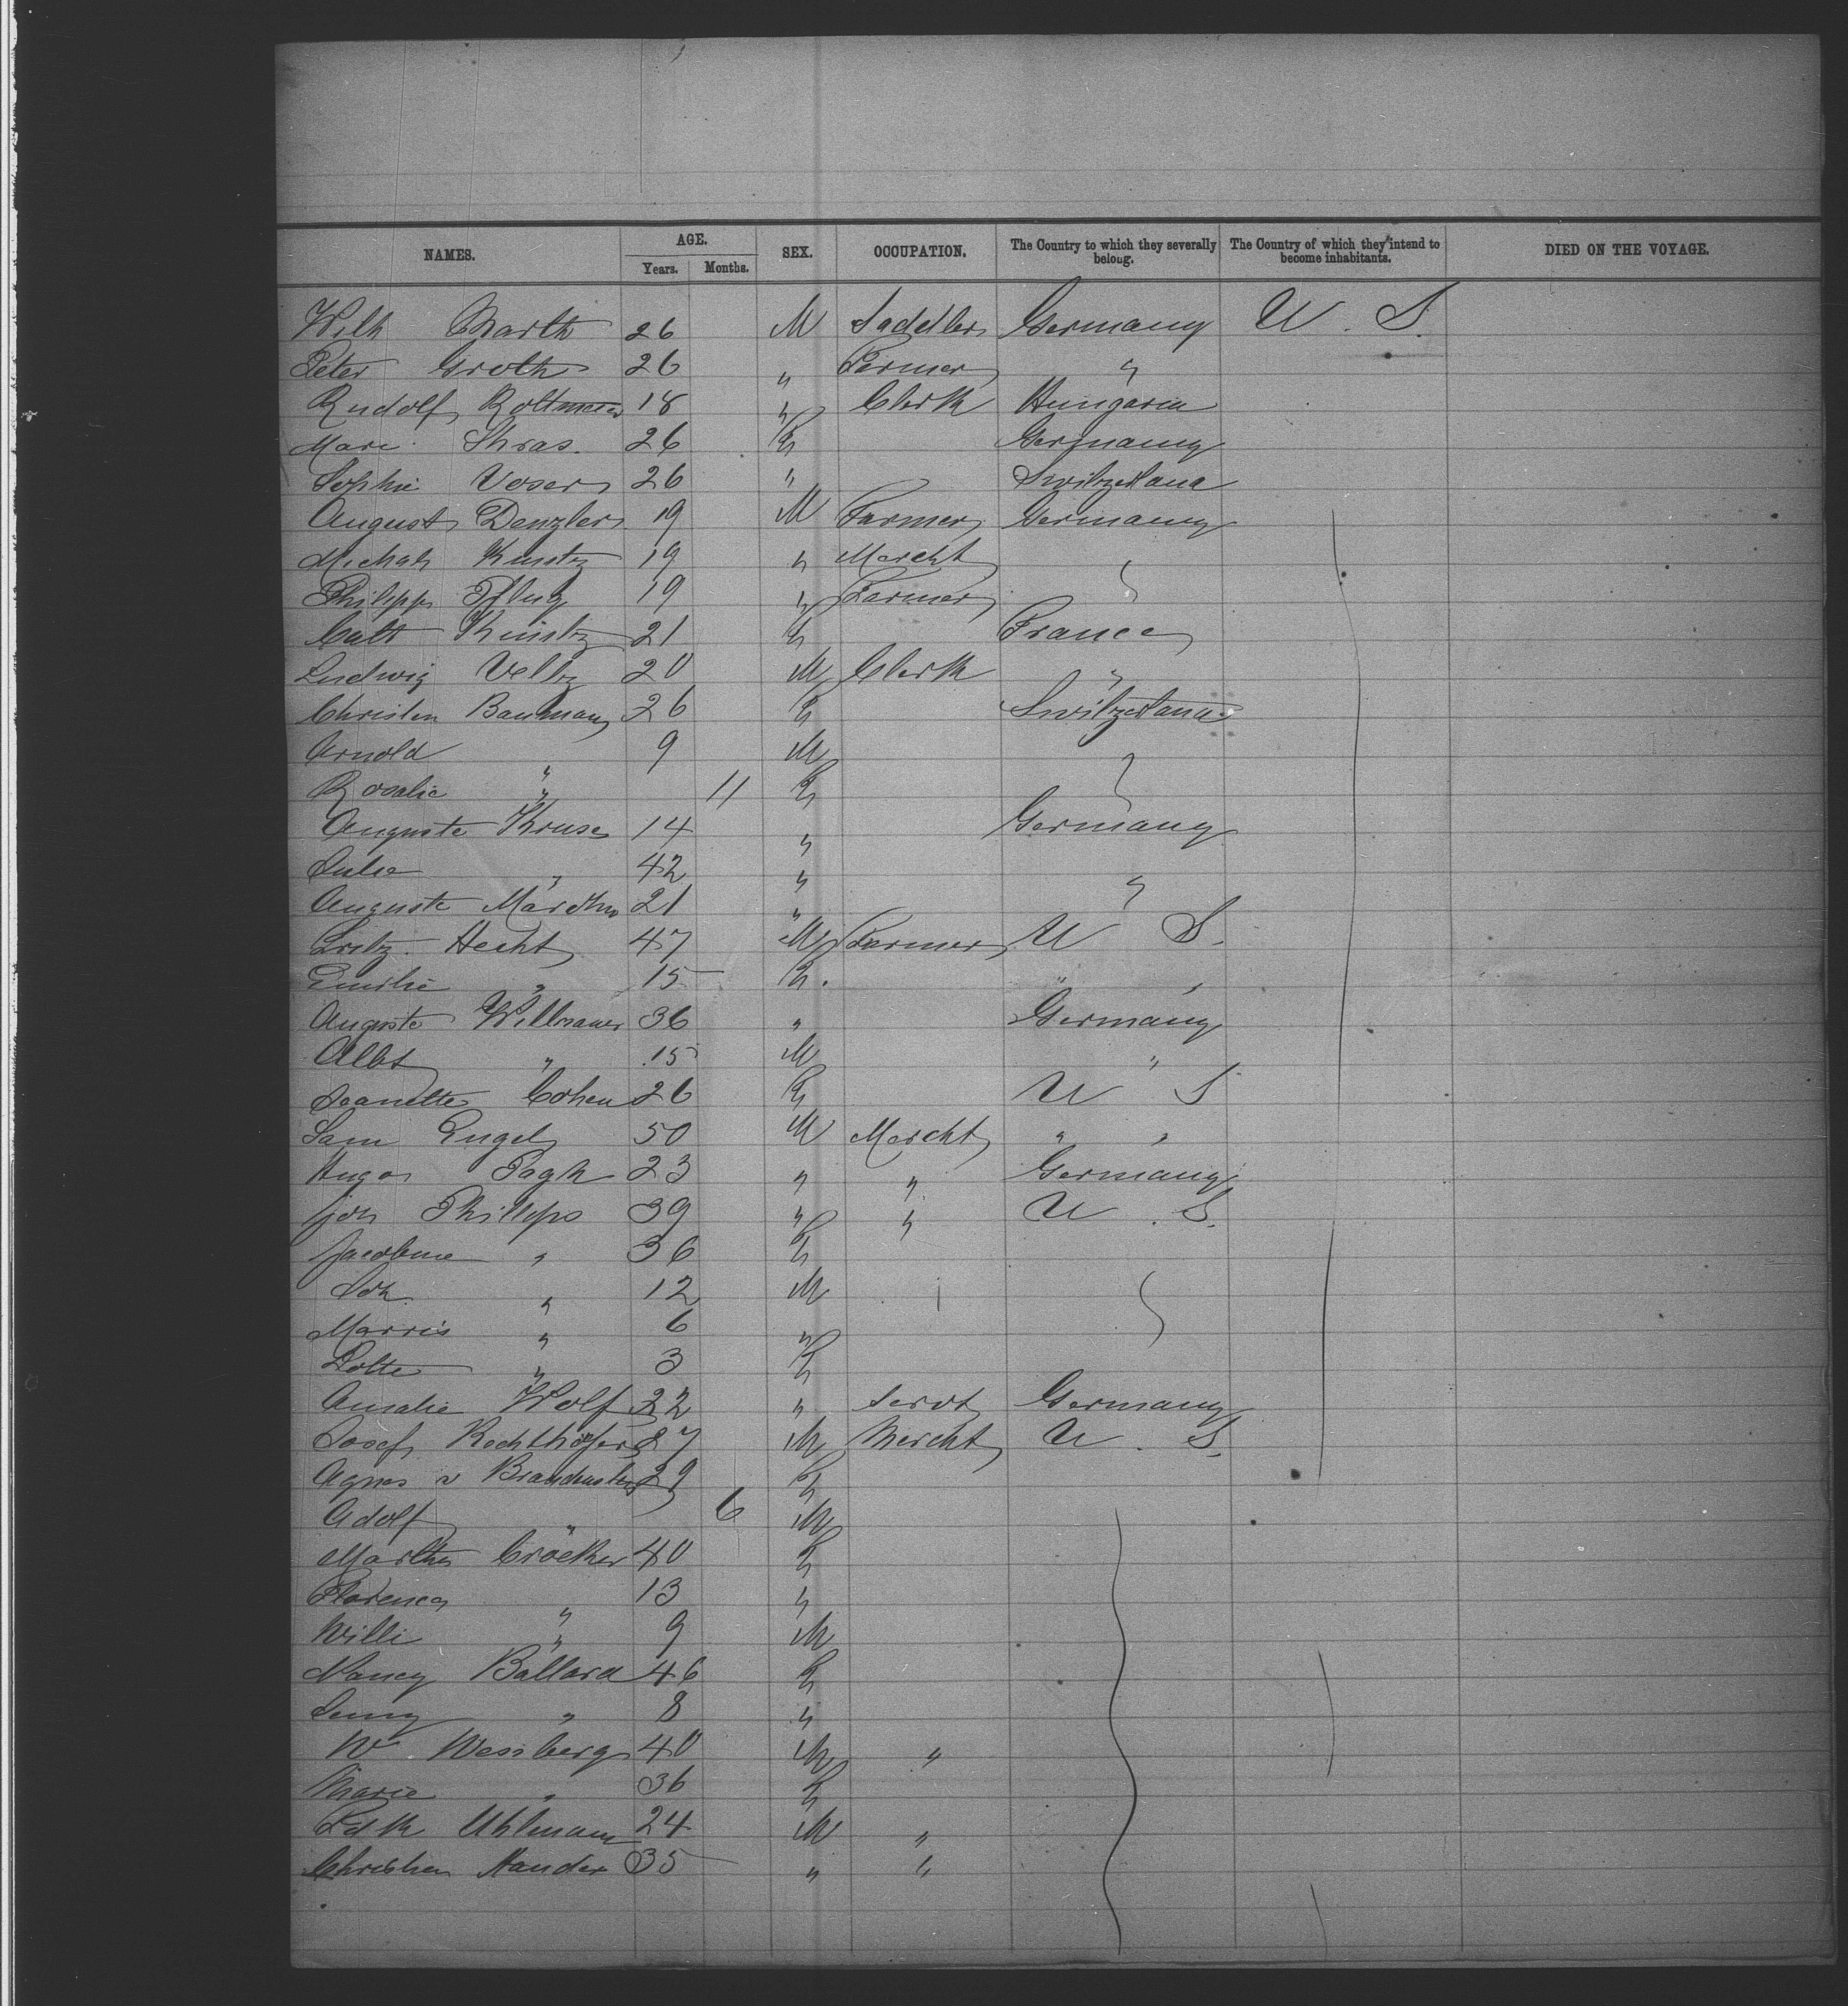 NAMES. AGE. Years. Months. SEX. OCCUPATION. The Country to which they severally belong. The Country of which they intend to become inhabitants. DIED ON THE VOYAGE.
Wilh Marth 26 M Saddler Germany U. S.
Peter Groth 26 " Farmer "
Rudolf 18 " Clerk Hungaria
Marie 26 F Germany
Sophie Voser 26 " Switzerland
August Denzler 19 M Farmer Germany
Kuntz 19 " Mercht "
Philipp Pflug 19 " Farmer "
21 F France
Ludwig 20 M Clerk "
Christen Bauman 26 F Switzerland
Arnold " 9 M
Rosalie " 11 F
Auguste Kruse 14 " Germany
Julie " 42 "
Auguste 21 " "
Fritz Hecht 47 M Farmer U S.
Emilie " 15 F. " "
Auguste 36 " Germany
Albt " 15 M "
Jeanette Cohen 26 F U S
Sam Engel 50 M Mercht " "
Hugo 23 " " Germany
Joh Phillips 39 " " U. S.
Jacobine " 36 F
Joh. " 12 M
Morris " 6 "
Lotte " 3 F
Amalie Wolf 22 " Servt Germany
Josef 27 M Mercht U. S.
Agnes v 29 F
Adolf " 6 M
Martha Crocker 40 F
Florence " 13 "
Willi " 9 M
Nancy Ballard 46 F
Jenny " 8 "
W Wessberg 40 M "
Marie " 36 F
Uhlmann 24 M "
Christian Nander 35 " "